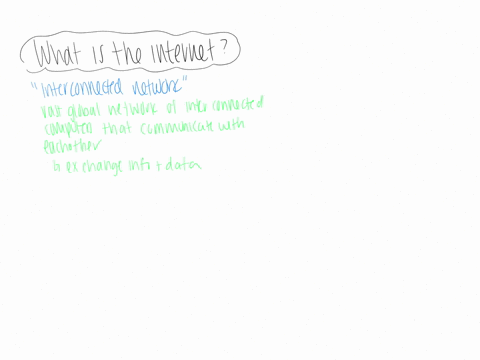 What is the internet?
"interconnected network"
vast global network of interconnected
computers that communicate with
eachother
↳ exchange info + data